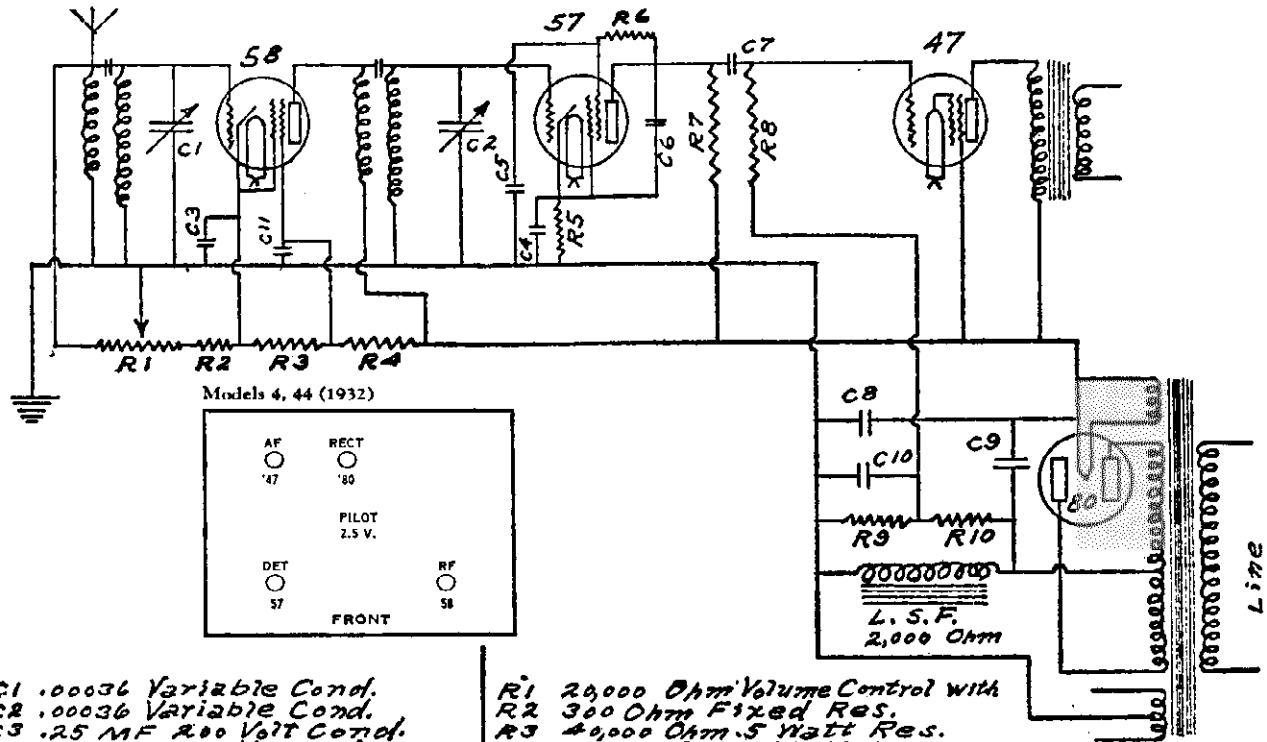 58
57
R6
C7
47
C1
C2
C5
C6
R7
R8
C3
C11
C4
R5
R1
R2
R3
R4
Models 4, 44 (1932)
AF
RECT
'47
'80
PILOT
2.5 V.
DET
RF
57
58
FRONT
C8
C9
C10
80
R9
R10
L. S. F.
2,000 Ohm
Line
C1 .00036 Variable Cond.
C2 .00036 Variable Cond.
C3 .25 MF 200 Volt Cond.
R1 20,000 Ohm Volume Control with
R2 300 Ohm Fixed Res.
R3 40,000 Ohm .5 Watt Res.